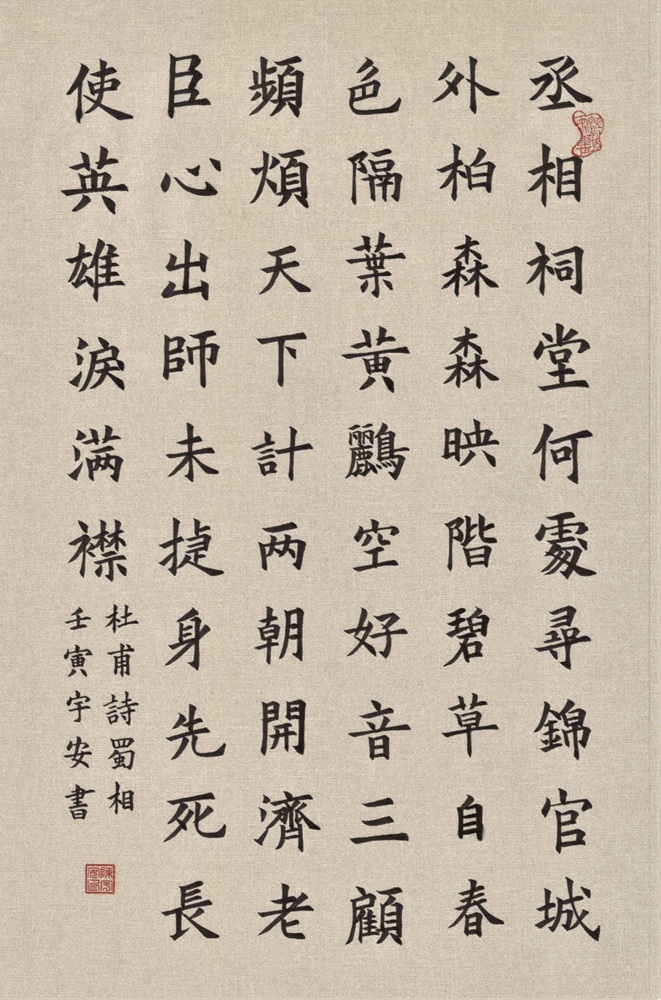 丞相祠堂何處尋錦官城
外柏森森映階碧草自春
色隔葉黃鸝空好音三顧
頻煩天下計两朝開濟老
臣心出師未捷身先死長
使英雄淚满襟
杜甫詩蜀相
壬寅宇安書